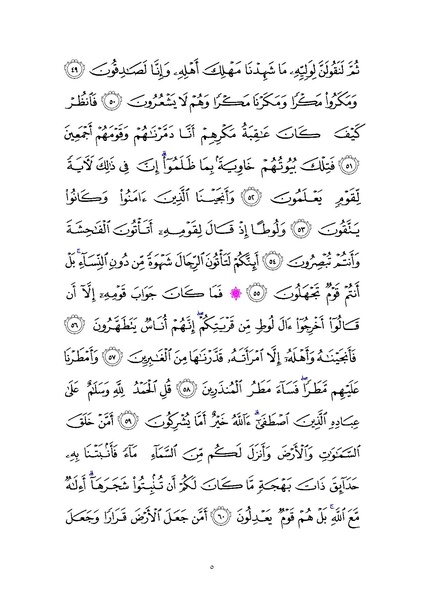 ثُمَّ لَنَقُولَنَّ لِوَلِيِّهِۦ مَا شَهِدْنَا مَهْلِكَ أَهْلِهِۦ وَإِنَّا لَصَـٰدِقُونَ ٤٩
وَمَكَرُوا۟ مَكْرًا وَمَكَرْنَا مَكْرًا وَهُمْ لَا يَشْعُرُونَ ٥٠ فَٱنظُرْ
كَيْفَ كَانَ عَـٰقِبَةُ مَكْرِهِمْ أَنَّا دَمَّرْنَـٰهُمْ وَقَوْمَهُمْ أَجْمَعِينَ
٥١ فَتِلْكَ بُيُوتُهُمْ خَاوِيَةًۢ بِمَا ظَلَمُوٓا۟ ۗ إِنَّ فِى ذَٰلِكَ لَـَٔايَةً
لِّقَوْمٍ يَعْلَمُونَ ٥٢ وَأَنجَيْنَا ٱلَّذِينَ ءَامَنُوا۟ وَكَانُوا۟
يَتَّقُونَ ٥٣ وَلُوطًا إِذْ قَالَ لِقَوْمِهِۦٓ أَتَأْتُونَ ٱلْفَـٰحِشَةَ
وَأَنتُمْ تُبْصِرُونَ ٥٤ أَئِنَّكُمْ لَتَأْتُونَ ٱلرِّجَالَ شَهْوَةً مِّن دُونِ ٱلنِّسَآءِ ۚ بَلْ
أَنتُمْ قَوْمٌ تَجْهَلُونَ ٥٥ ۞ فَمَا كَانَ جَوَابَ قَوْمِهِۦٓ إِلَّآ أَن
قَالُوٓا۟ أَخْرِجُوٓا۟ ءَالَ لُوطٍ مِّن قَرْيَتِكُمْ ۖ إِنَّهُمْ أُنَاسٌ يَتَطَهَّرُونَ ٥٦
فَأَنجَيْنَـٰهُ وَأَهْلَهُۥٓ إِلَّا ٱمْرَأَتَهُۥ قَدَّرْنَـٰهَا مِنَ ٱلْغَـٰبِرِينَ ٥٧ وَأَمْطَرْنَا
عَلَيْهِم مَّطَرًا ۖ فَسَآءَ مَطَرُ ٱلْمُنذَرِينَ ٥٨ قُلِ ٱلْحَمْدُ لِلَّهِ وَسَلَـٰمٌ عَلَىٰ
عِبَادِهِ ٱلَّذِينَ ٱصْطَفَىٰٓ ۗ ءَآللَّهُ خَيْرٌ أَمَّا يُشْرِكُونَ ٥٩ أَمَّنْ خَلَقَ
ٱلسَّمَـٰوَٰتِ وَٱلْأَرْضَ وَأَنزَلَ لَكُم مِّنَ ٱلسَّمَآءِ مَآءً فَأَنۢبَتْنَا بِهِۦ
حَدَآئِقَ ذَاتَ بَهْجَةٍ مَّا كَانَ لَكُمْ أَن تُنۢبِتُوا۟ شَجَرَهَآ ۗ أَءِلَـٰهٌ
مَّعَ ٱللَّهِ ۚ بَلْ هُمْ قَوْمٌ يَعْدِلُونَ ٦٠ أَمَّن جَعَلَ ٱلْأَرْضَ قَرَارًا وَجَعَلَ
٥